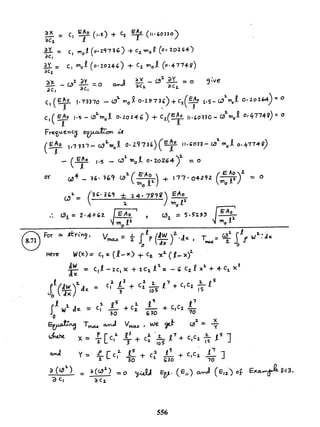 ∂X/∂C₂ = C₁ EA₀/l (1.5) + C₂ EA₀/l (11.60330)
∂Y/∂C₁ = C₁ m₀ l (0.29736) + C₂ m₀ l (0.20264)
∂Y/∂C₂ = C₁ m₀ l (0.20264) + C₂ m₀ l (0.47748)
∂X/∂C₁ - ω² ∂Y/∂C₁ = 0 and ∂X/∂C₂ - ω² ∂Y/∂C₂ = 0 give
C₁ (EA₀/l 1.73370 - ω² m₀ l 0.29736) + C₂ (EA₀/l 1.5 - ω² m₀ l 0.20264) = 0
C₁ (EA₀/l 1.5 - ω² m₀ l 0.20264) + C₂ (EA₀/l 11.60330 - ω² m₀ l 0.47748) = 0
Frequency equation is
(EA₀/l 1.7337 - ω² m₀ l 0.29736) (EA₀/l 11.6033 - ω² m₀ l 0.47748)
- (EA₀/l 1.5 - ω² m₀ l 0.20264)² = 0
or ω⁴ - 36.369 ω² (EA₀/m₀ l²) + 177.04292 (EA₀/m₀ l²)² = 0
ω² = (36.369 ± 24.7898)/2 EA₀/m₀ l²
∴ ω₁ = 2.4062 √(EA₀/m₀ l²) , ω₂ = 5.5299 √(EA₀/m₀ l²)
8.71 For a string, V_max = 1/2 ∫₀ˡ P (dW/dx)² dx , T_max = ω²/2 ∫₀ˡ ρ W² dx
Here W(x) = C₁ x (l-x) + C₂ x² (l-x)²
dW/dx = C₁ l - 2C₁ x + 2C₂ l² x - 6 C₂ l x² + 4C₂ x³
∫₀ˡ (dW/dx)² dx = C₁² l³/3 + C₂² 2/105 l⁷ + C₁C₂ 2/15 l⁵
∫₀ˡ W² dx = C₁² l⁵/30 + C₂² l⁹/630 + C₁C₂ l⁷/70
Equating T_max and V_max, we get ω² = X/Y
where X = P/2 [C₁² l³/3 + C₂² 2/105 l⁷ + C₁C₂ 2/15 l⁵]
and Y = ρ/2 [C₁² l⁵/30 + C₂² l⁹/630 + C₁C₂ l⁷/70]
∂(ω²)/∂C₁ = ∂(ω²)/∂C₂ = 0 yield Eqs. (E₁₁) and (E₁₂) of Example 8.13.
556